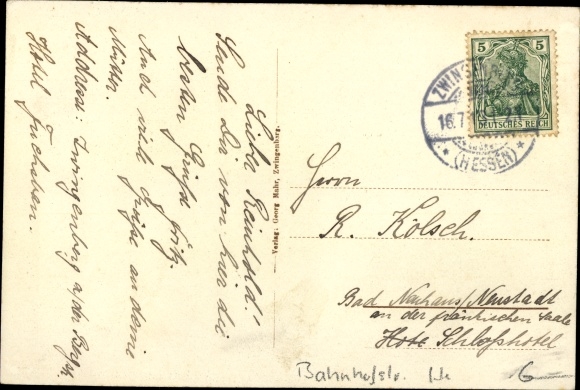 Liebe Reinhold!
Sende Dir von hier die
besten Grüße Fritz.
Auch viele Grüße an deine
Mutter.
Addresse: Zwingenberg a/der Bergstr.
Hotel Fuchsbau.
Verlag: Georg Mahr, Zwingenberg.
5 5
DEUTSCHES REICH
ZWINGENBERG
16.7.
(HESSEN)
Herrn
R. Kölsch.
Bad Neuhaus/Neustadt
an der fränkischen Saale
Hotel Schloßhotel
Bahnhofstr.
6